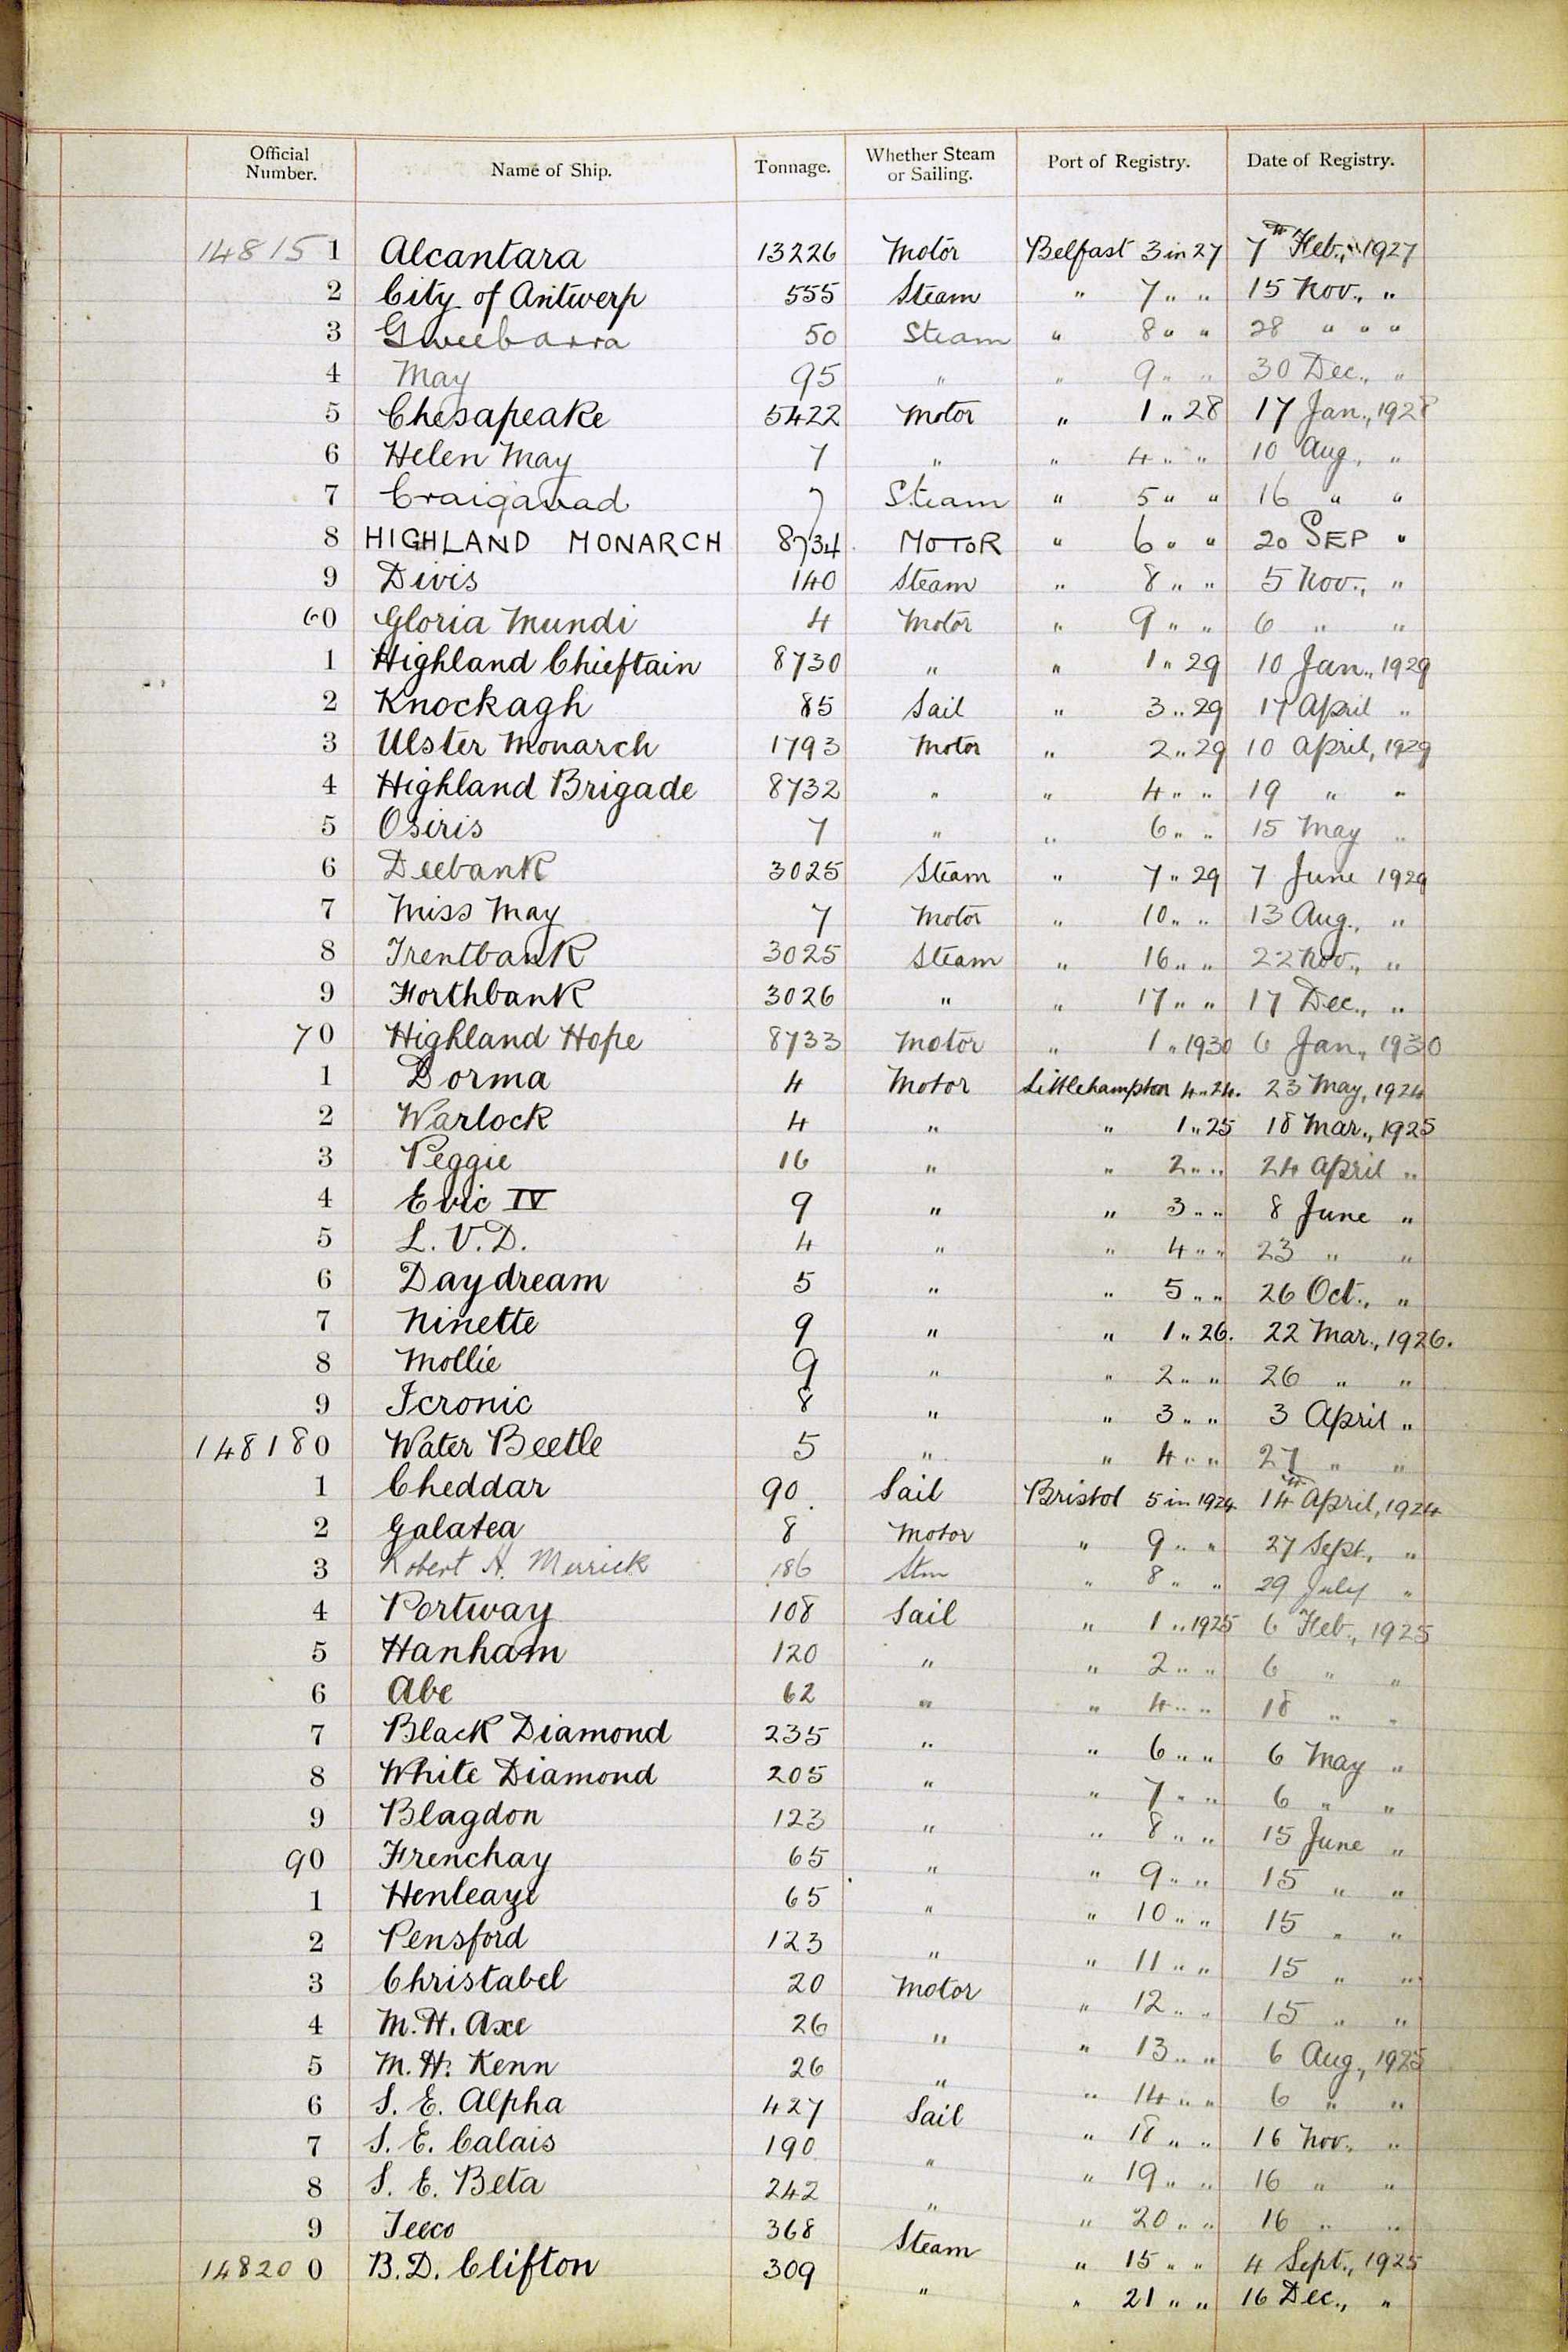 Official Number. Name of Ship. Tonnage. Whether Steam or Sailing. Port of Registry. Date of Registry.
148151 Alcantara 13226 Motor Belfast 3 in 27 7th Feb., 1927
2 City of Antwerp 555 Steam " 7 " " 15 Nov., "
3 Gweebarra 50 Steam " 8 " " 28 " " "
4 May 95 " " 9 " " 30 Dec., "
5 Chesapeake 5422 Motor " 1 " 28 17 Jan., 1928
6 Helen May 7 " " 4 " " 10 Aug., "
7 Craigavad 7 Steam " 5 " " 16 " "
8 HIGHLAND MONARCH 8734 MOTOR " 6 " " 20 SEP "
9 Divis 140 Steam " 8 " " 5 Nov., "
60 Gloria Mundi 4 Motor " 9 " " 6 " "
1 Highland Chieftain 8730 " " 1 " 29 10 Jan., 1929
2 Knockagh 85 Sail " 3 " 29 17 April "
3 Ulster Monarch 1793 Motor " 2 " 29 10 April, 1929
4 Highland Brigade 8732 " " 4 " " 19 " "
5 Osiris 7 " " 6 " " 15 May "
6 Deebank 3025 Steam " 7 " 29 7 June 1929
7 Miss May 7 Motor " 10 " " 13 Aug., "
8 Trentbank 3025 Steam " 16 " " 22 Nov., "
9 Forthbank 3026 " " 17 " " 17 Dec., "
70 Highland Hope 8733 Motor " 1 " 1930 6 Jan., 1930
1 Dorma 4 Motor Littlehampton 4 " 24. 23 May, 1924
2 Warlock 4 " " 1 " 25 18 Mar., 1925
3 Peggie 16 " " 2 " " 24 April "
4 Evic IV 9 " " 3 " " 8 June "
5 L. V. D. 4 " " 4 " " 23 " "
6 Daydream 5 " " 5 " " 26 Oct., "
7 Ninette 9 " " 1 " 26. 22 Mar., 1926.
8 Mollie 9 " " 2 " " 26 " "
9 Icronic 8 " " 3 " " 3 April "
148180 Water Beetle 5 " " 4 " " 27 " "
1 Cheddar 90 Sail Bristol 5 in 1924 14th April, 1924
2 Galatea 8 Motor " 9 " " 27 Sept., "
3 Robert A. Merrick 186 Stm " 8 " " 29 July "
4 Portway 108 Sail " 1 " 1925 6 Feb., 1925
5 Hanham 120 " " 2 " " 6 " "
6 Abe 62 " " 4 " " 18 " "
7 Black Diamond 235 " " 6 " " 6 May "
8 White Diamond 205 " " 7 " " 6 " "
9 Blagdon 123 " " 8 " " 15 June "
90 Frenchay 65 " " 9 " " 15 " "
1 Henleaze 65 " " 10 " " 15 " "
2 Pensford 123 " " 11 " " 15 " "
3 Christabel 20 Motor " 12 " " 15 " "
4 M. H. Axe 26 " " 13 " " 6 Aug., 1925
5 M. H. Kenn 26 " " 14 " " 6 " "
6 S. E. Alpha 427 Sail " 18 " " 16 Nov. "
7 S. E. Calais 190 " " 19 " " 16 " "
8 S. E. Beta 242 " " 20 " " 16 " "
9 Teeco 368 Steam " 15 " " 4 Sept., 1925
148200 B. D. Clifton 309 " " 21 " " 16 Dec., "